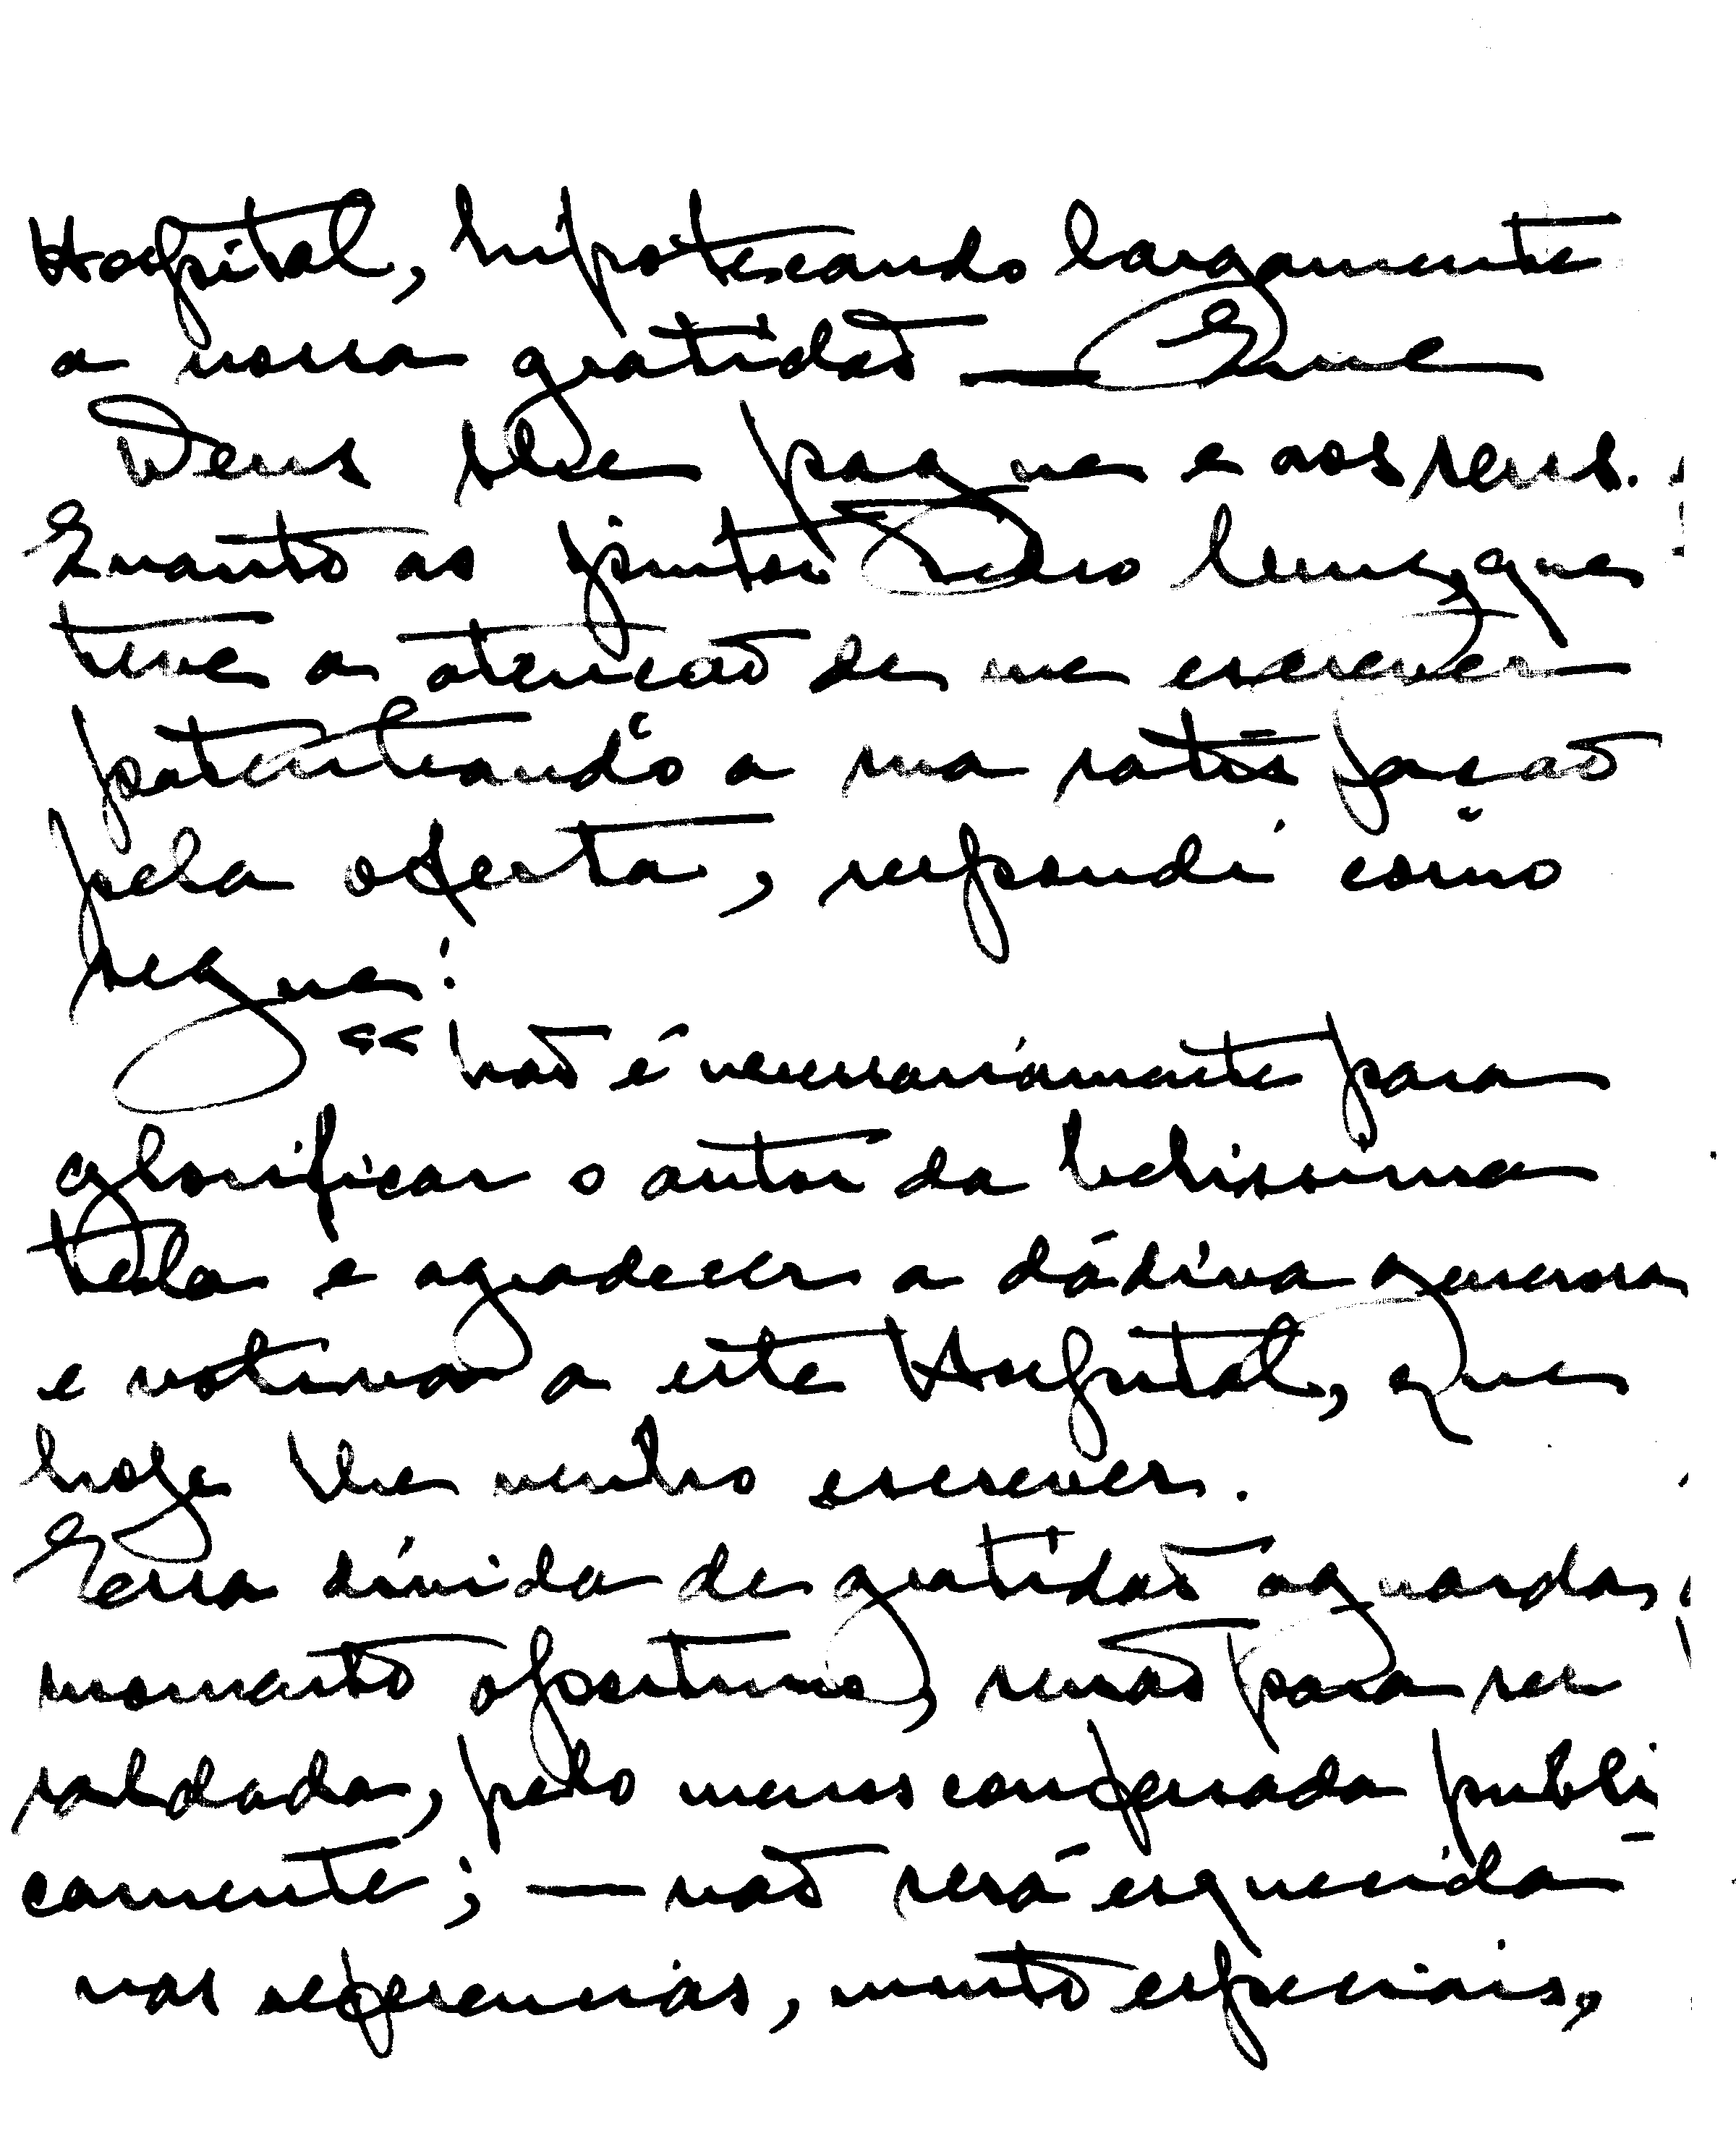 Hospital, hipotecando largamente
a nossa gratidão — Que
Deus lhe pague e aos seus.
Quanto ao pintor Pedro Leme, que
teve a atenção de me escrever
patenteando a sua satisfação
pela oferta, respondi como
segue:
"Não é necessariamente para
glorificar o autor da belissima
tela e agradecer a dádiva generosa
e votiva a este Hospital, que
hoje lhe venho escrever.
Essa dívida de gratidão aguarda
momento oportuno, senão para ser
saldada, pelo menos confessada publi
camente; — não será esquecida
nas referencias, muito especiais,